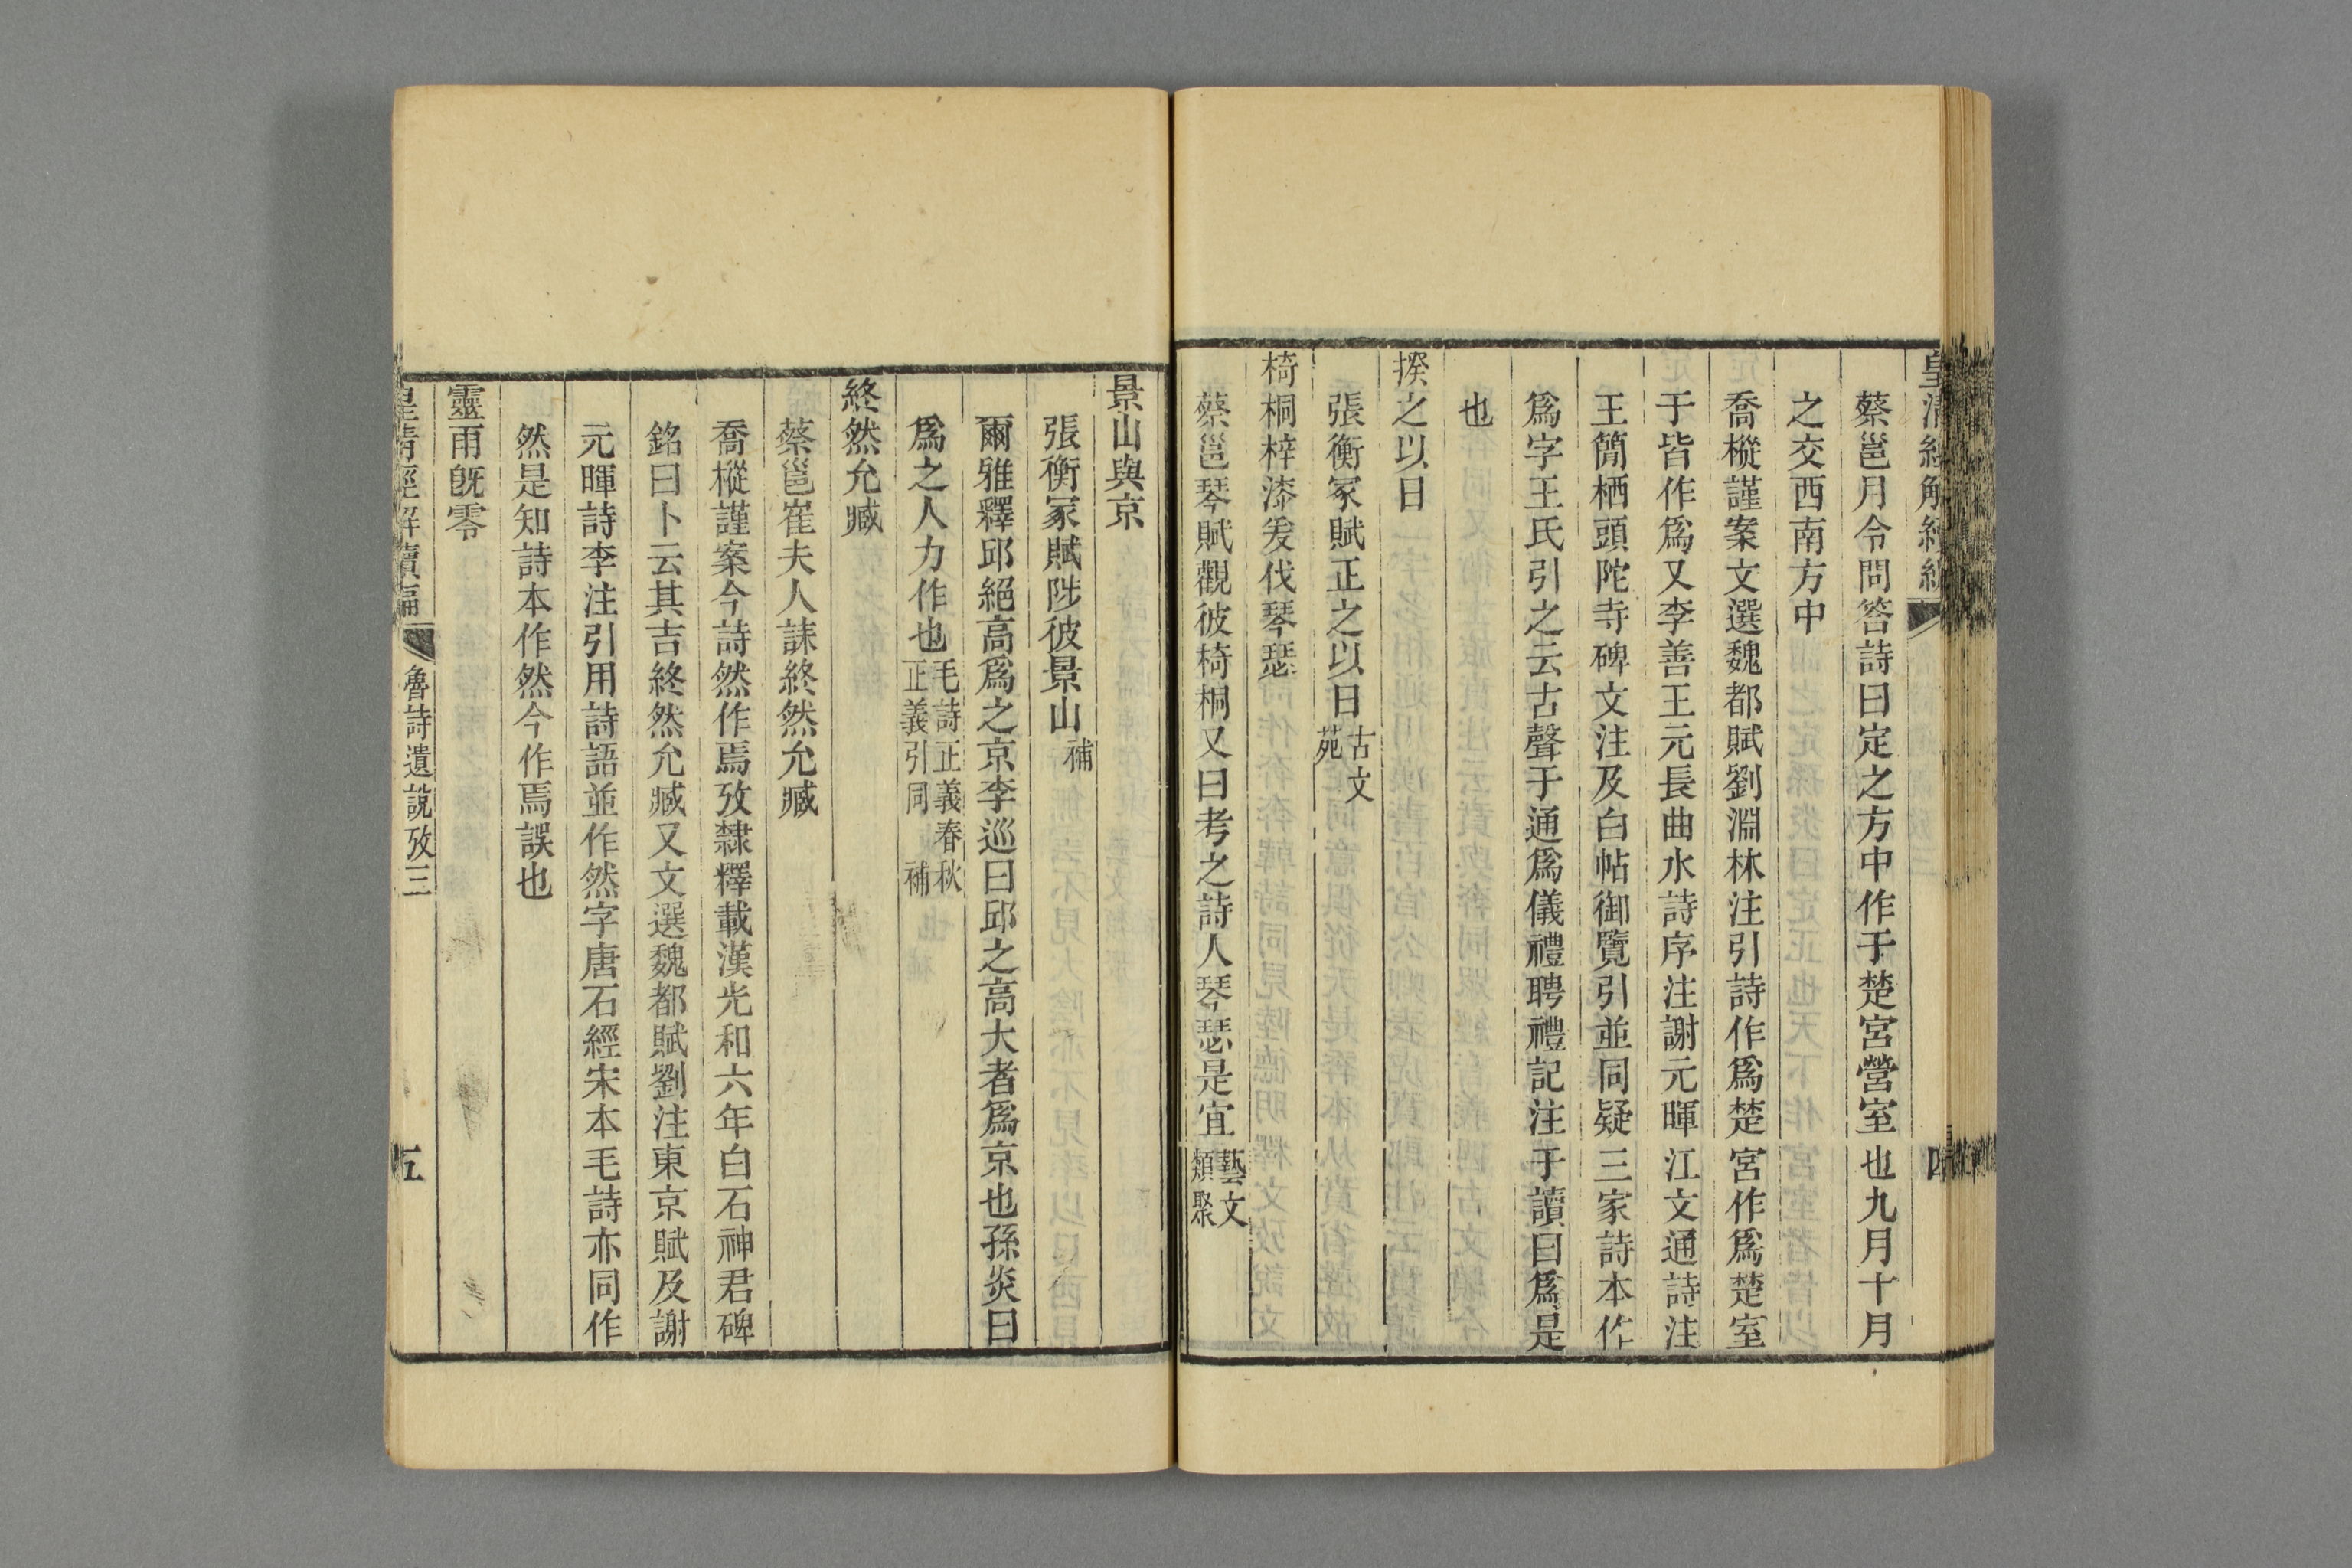 皇清經解續編
四
蔡邕月令問答詩曰定之方中作于楚宮營室也九月十月
之交西南方中
喬樅謹案文選魏都賦劉淵林注引詩作爲楚宮作爲楚室
于皆作爲又李善王元長曲水詩序注謝元暉江文通詩注
王簡栖頭陀寺碑文注及白帖御覽引並同疑三家詩本作
爲字王氏引之云古聲于通爲儀禮聘禮記注于讀曰爲是
也
揆之以日
張衡冢賦正之以日古文
苑
椅桐梓漆爰伐琴瑟
蔡邕琴賦觀彼椅桐又曰考之詩人琴瑟是宜藝文
類聚
景山與京
張衡冢賦陟彼景山補
爾雅釋邱絕高爲之京李巡曰邱之高大者爲京也孫炎曰
爲之人力作也毛詩正義春秋
正義引同 補
終然允臧
蔡邕崔夫人誄終然允臧
喬樅謹案今詩然作焉攷隸釋載漢光和六年白石神君碑
銘曰卜云其吉終然允臧又文選魏都賦劉注東京賦及謝
元暉詩李注引用詩語並作然字唐石經宋本毛詩亦同作
然是知詩本作然今作焉誤也
靈雨旣零
皇清經解續編
魯詩遺說攷三
五